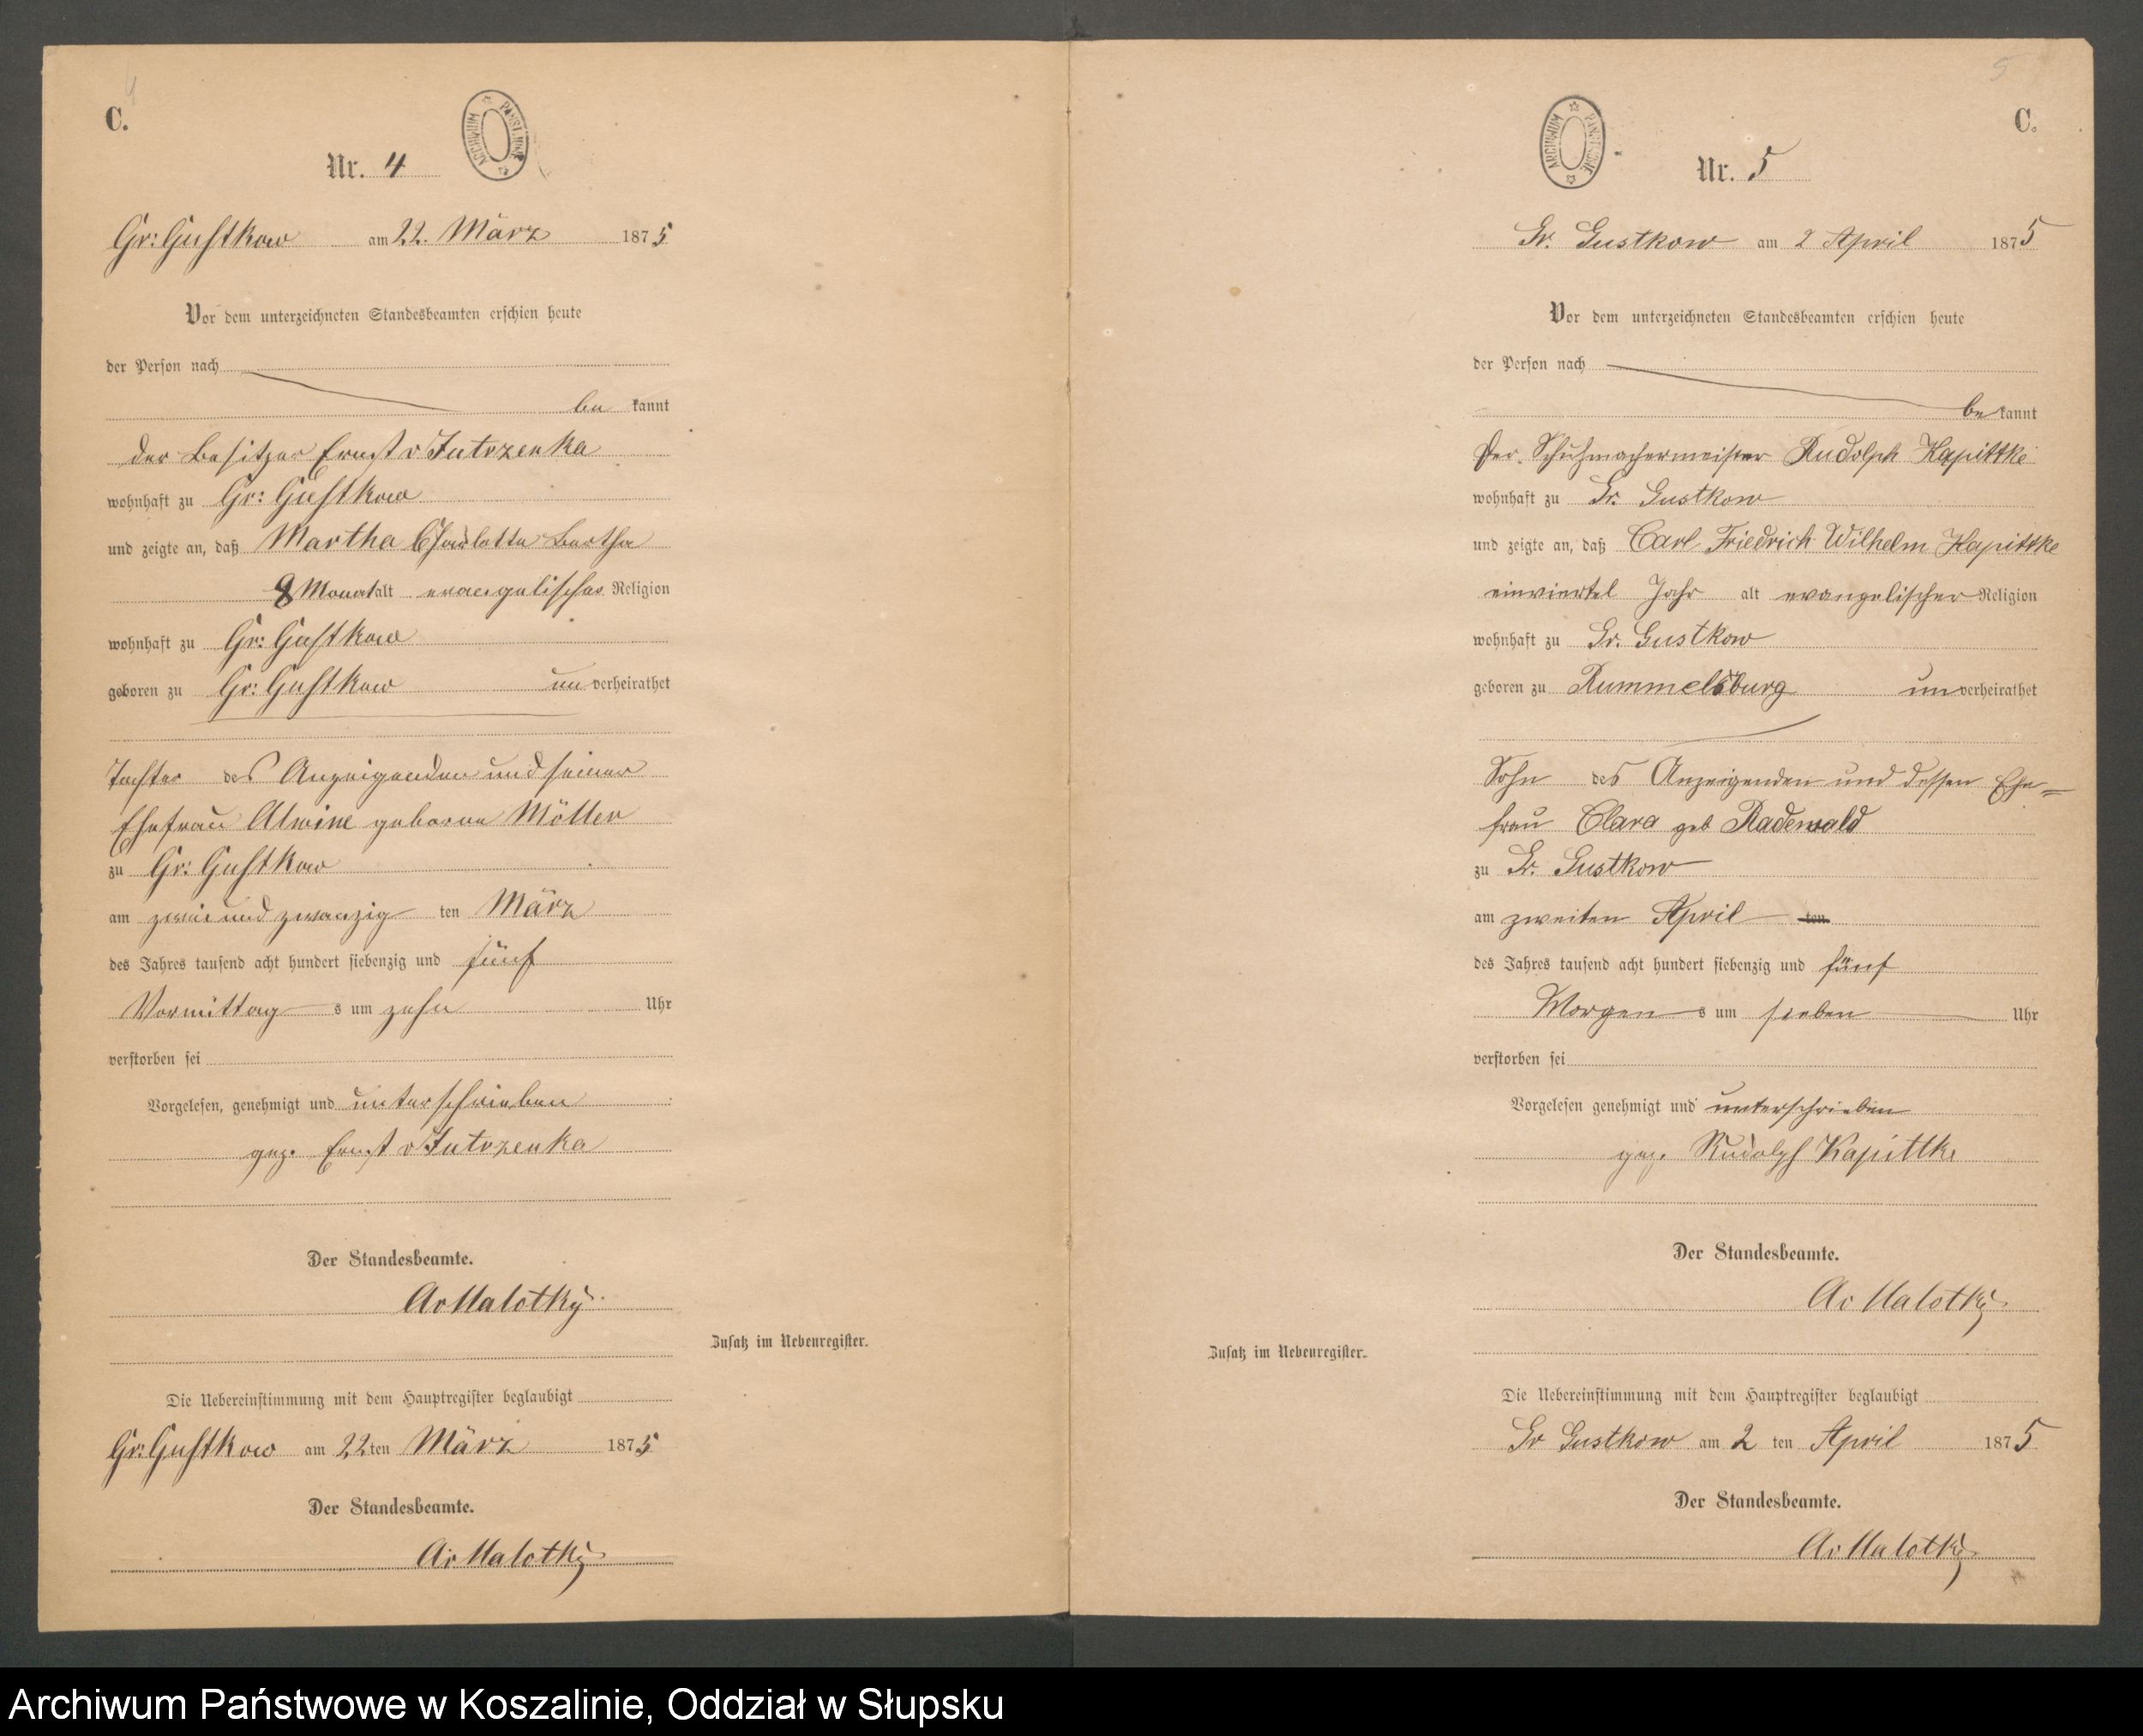 4
C.
ARCHIWUM PAŃSTWOWE
Nr. 4
Gr: Gustkow am 22. März 1875
Vor dem unterzeichneten Standesbeamten erschien heute
der Person nach
be kannt
der Besitzer Ernst v Jutrzenka
wohnhaft zu Gr: Gustkow
und zeigte an, daß Martha Charlotte Bertha
8 Monat alt evangelischer Religion
wohnhaft zu Gr: Gustkow
geboren zu Gr: Gustkow un verheirathet
Tochter des Anzeigenden und seiner
Ehefrau Alwine geborne Möller
zu Gr: Gustkow
am zwei und zwanzig ten März
des Jahres tausend acht hundert siebenzig und fünf
Vormittag s um zehn Uhr
verstorben sei
Vorgelesen, genehmigt und unterschrieben
gez. Ernst v Jutrzenka
Der Standesbeamte.
Av Malotky
Zusatz im Nebenregister.
Die Uebereinstimmung mit dem Hauptregister beglaubigt
Gr: Gustkow am 22 ten März 1875
Der Standesbeamte.
Av Malotky
5
C.
ARCHIWUM PAŃSTWOWE
Nr. 5
Gr. Gustkow am 2 April 1875
Vor dem unterzeichneten Standesbeamten erschien heute
der Person nach
be kannt
Der Schuhmachermeister Rudolph Kapittke
wohnhaft zu Gr. Gustkow
und zeigte an, daß Carl Friedrich Wilhelm Kapittke
einviertel Jahr alt evangelischer Religion
wohnhaft zu Gr. Gustkow
geboren zu Rummelsburg un verheirathet
Sohn des Anzeigenden und dessen Ehe=
frau Clara geb Radewald
zu Gr. Gustkow
am zweiten April ten
des Jahres tausend acht hundert siebenzig und fünf
Morgen s um sieben Uhr
verstorben sei
Vorgelesen genehmigt und unterschrieben
gez. Rudolph Kapittke
Der Standesbeamte.
Av Malotky
Zusatz im Nebenregister.
Die Uebereinstimmung mit dem Hauptregister beglaubigt
Gr Gustkow am 2 ten April 1875
Der Standesbeamte.
Av Malotky
Archiwum Państwowe w Koszalinie, Oddział w Słupsku